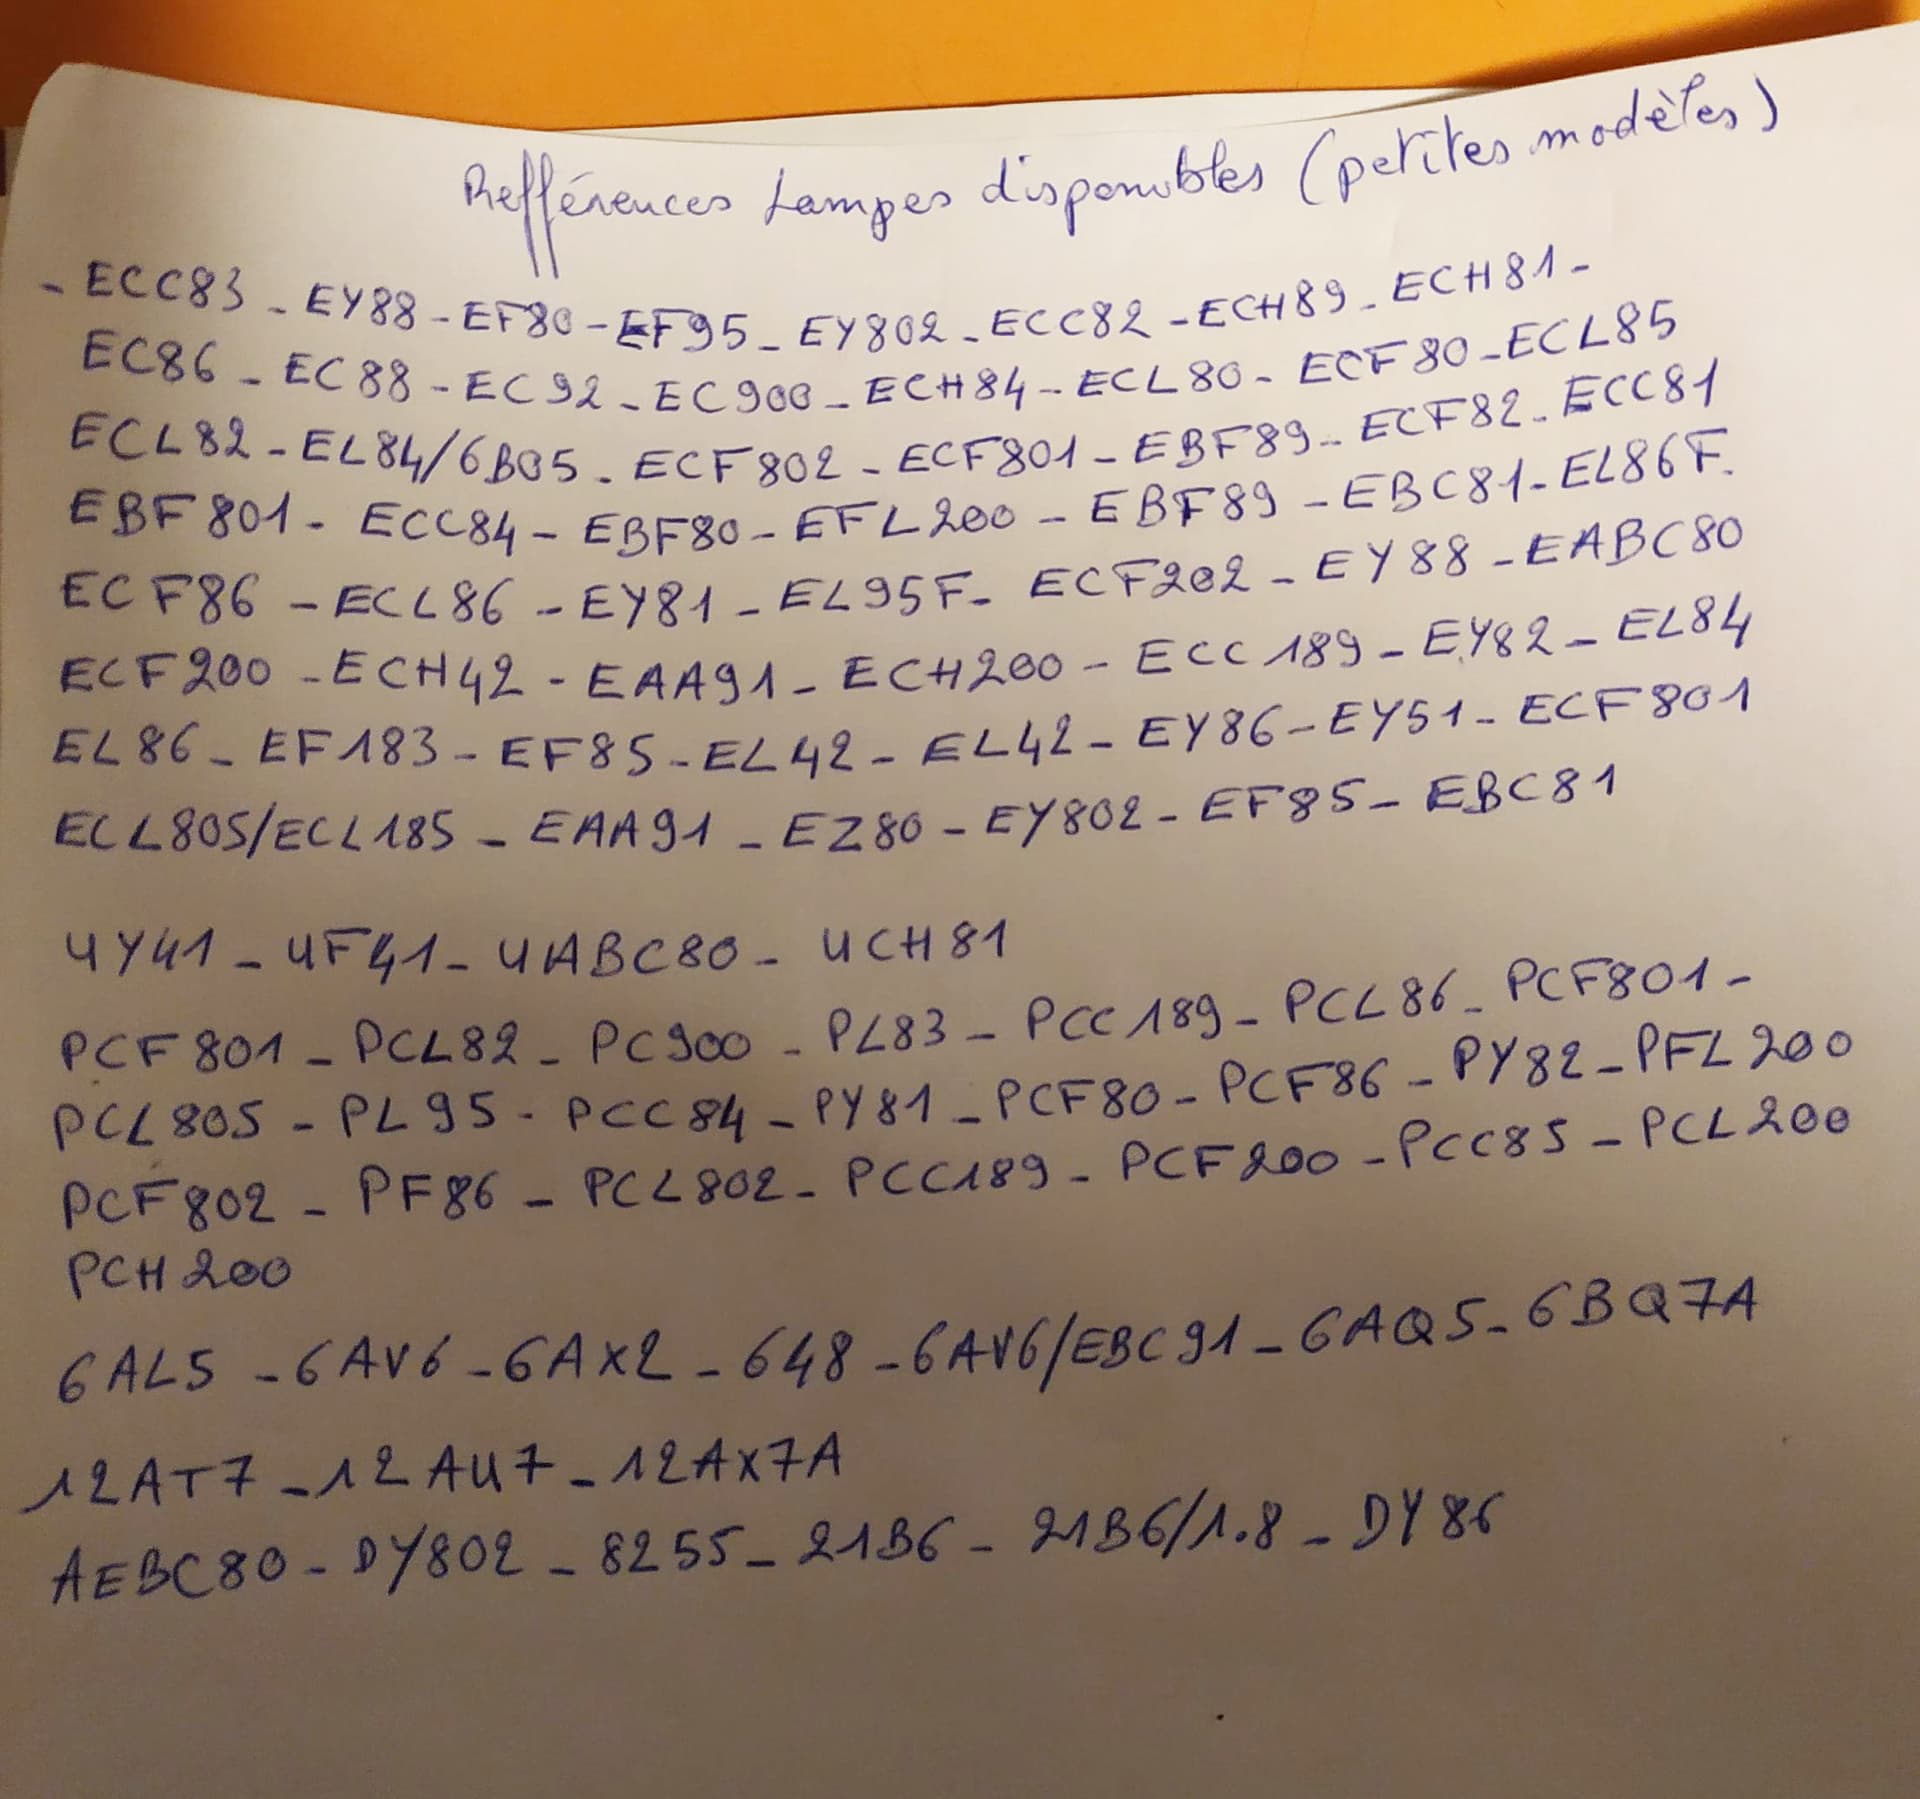 Refférences Lampes disponibles (petites modèles)
- ECC83 - EY88 - EF80 - EF95 - EY802 - ECC82 - ECH89 - ECH81 -
EC86 - EC88 - EC92 - EC900 - ECH84 - ECL80 - ECF80 - ECL85
ECL82 - EL84/6BQ5 - ECF802 - ECF801 - EBF89 - ECF82 - ECC81
EBF801 - ECC84 - EBF80 - EFL200 - EBF89 - EBC81 - EL86F.
ECF86 - ECL86 - EY81 - EL95F - ECF202 - EY88 - EABC80
ECF200 - ECH42 - EAA91 - ECH200 - ECC189 - EY82 - EL84
EL86 - EF183 - EF85 - EL42 - EL42 - EY86 - EY51 - ECF801
ECL805/ECL185 - EAA91 - EZ80 - EY802 - EF85 - EBC81
UY41 - UF41 - UABC80 - UCH81
PCF801 - PCL82 - PC900 - PL83 - PCC189 - PCL86 - PCF801 -
PCL805 - PL95 - PCC84 - PY81 - PCF80 - PCF86 - PY82 - PFL200
PCF802 - PF86 - PCL802 - PCC189 - PCF200 - PCC85 - PCL200
PCH200
6AL5 - 6AV6 - 6AX2 - 648 - 6AV6/EBC91 - 6AQ5 - 6BQ7A
12AT7 - 12AU7 - 12AX7A
AEBC80 - DY802 - 8255 - 21B6 - 21B6/1.8 - DY86